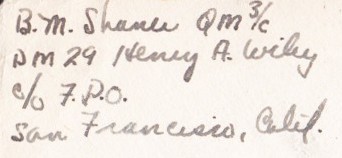 B.M. Shaner QM 3/c
DM 29 Henry A. Wiley
c/o F.P.O.
San Francisco, Calif.